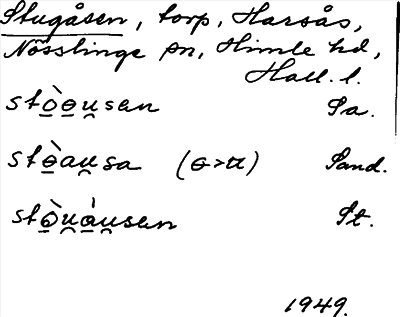 Stugåsen, torp, Harsås,
Nösslinge sn, Himle hd,
Hall. l.
stò̱ɵ̱u̯sen Sa.
stɵ̱̀au̯sa (ɵ>u) Sand.
stò̱u̯ȧ̱u̯sen St.
1949.